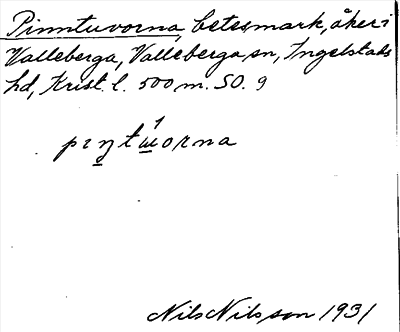 Pinntuvorna, betesmark, åker i
Valleberga, Valleberga sn, Ingelstads
hd, Krist. l. 500 m. SO. 9
pıŋtɯ́orna
Nils Nilsson 1931